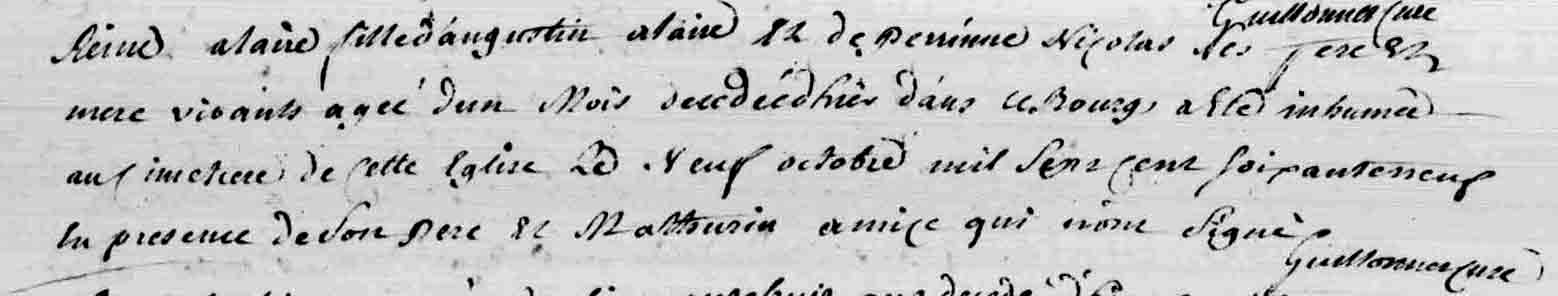 Guillonner Cure
Reine alaire fille d'augustin alaire Et de perrinne Nicolas ses pere Et
mere vivants agée d'un Mois decedée d'hier dans ce Bourg a Eté inhumee
au Cimetiere de cette Eglise Le Neuf octobre mil Sept cent soixante neuf
En presence de son pere Et Mathurin amice qui n'ont Signé
Guillonner Curé